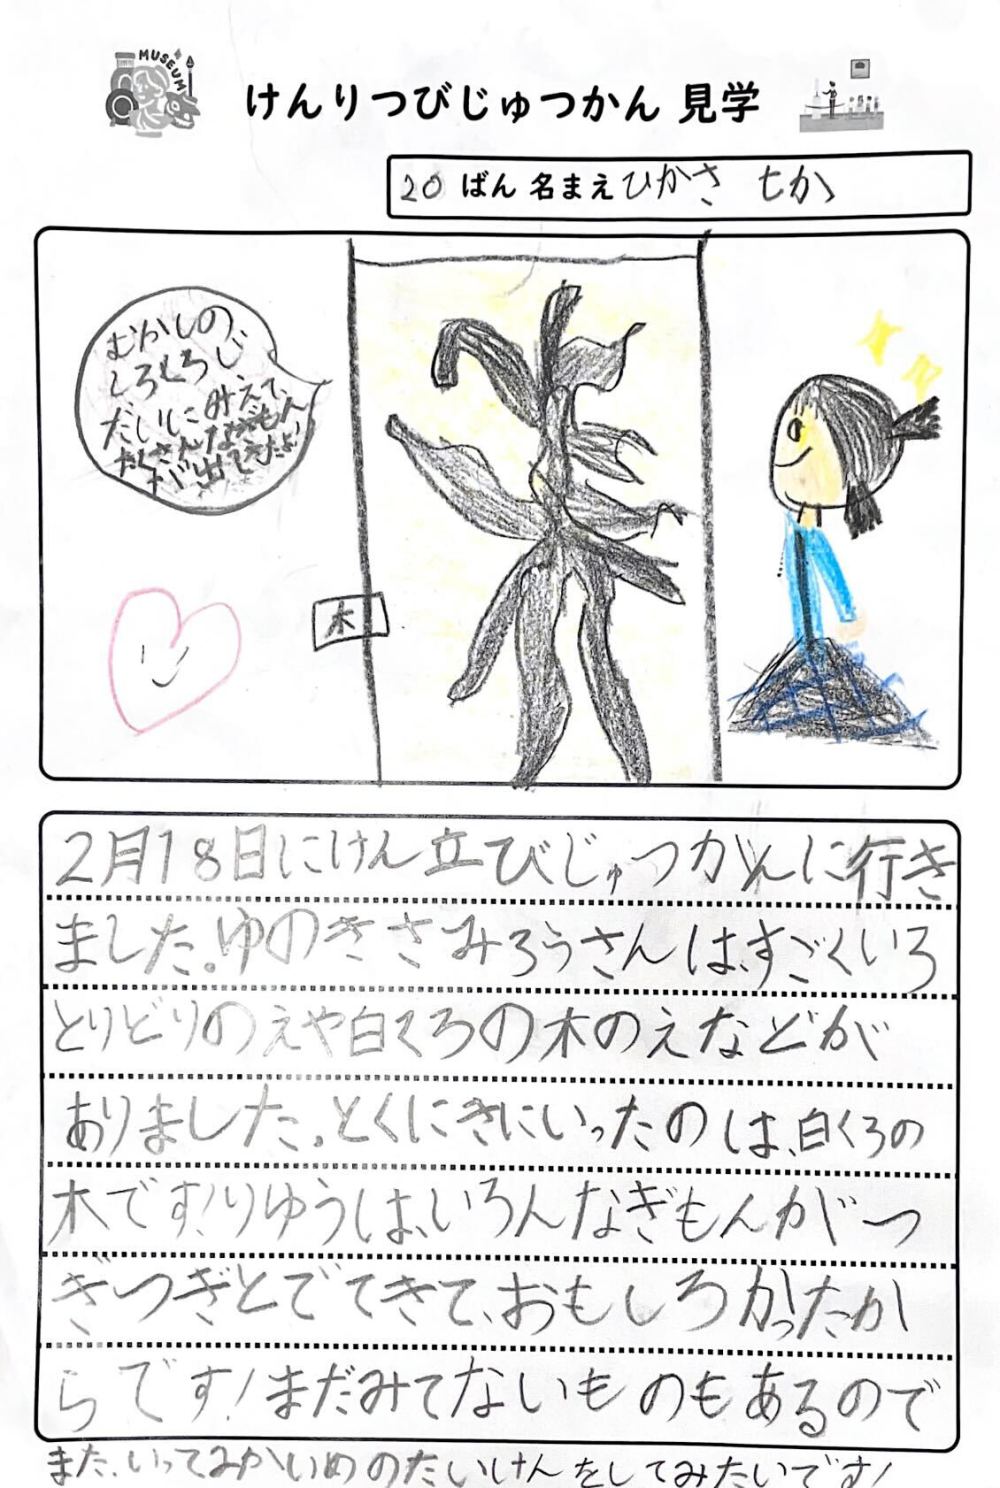 MUSEUM
けんりつびじゅつかん 見学
20 ばん 名まえ ひかさ ちか
むかしの、
しろくろじ
だいにみえて、
たくさんなぎもん
が出てきたよ!
木
2月18日にけん立びじゅつかんに行き
ました。ゆのきさみろうさんは、すごくいろ
とりどりのえや白くろの木のえなどが
ありました。とくにきにいったのは、白くろの
木です!りゆうは、いろんなぎもんがつ
ぎつぎとでてきて、おもしろかったか
らです!まだみてないものもあるので
また、いってみかいめのたいけんをしてみたいです!